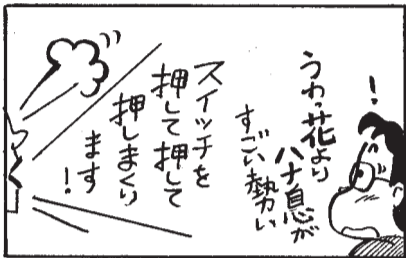 !
うわっ花より
ハナ息が
すごい勢い
スイッチを
押して押して
押しまくり
ます
!